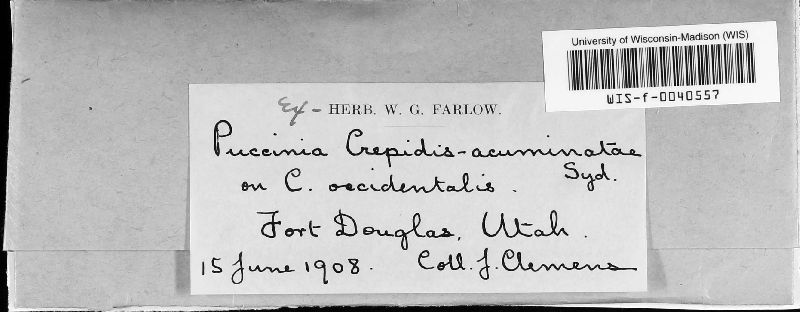 University of Wisconsin-Madison (WIS)
WIS-f-0040557
Ex - HERB. W. G. FARLOW.
Puccinia Crepidis-acuminatae
Syd.
on C. occidentalis.
Fort Douglas, Utah.
15 June 1908. Coll. J. Clemens